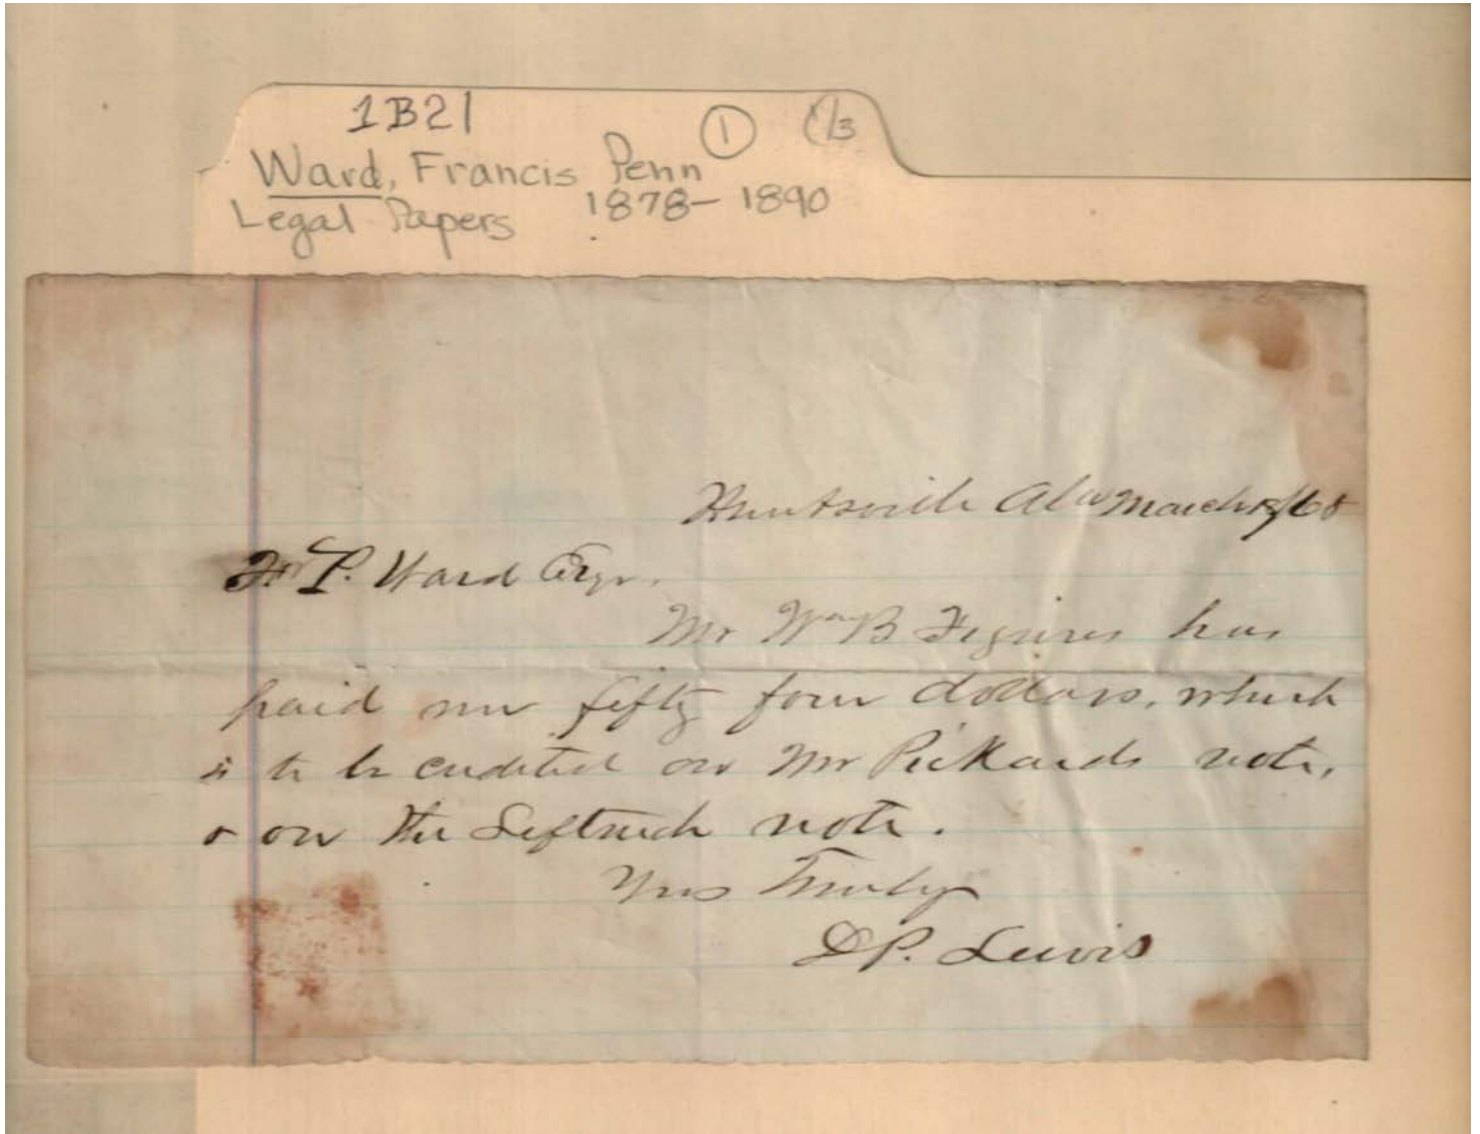 1B21 1 1/3
Ward, Francis Penn
Legal Papers 1878-1890
Huntsville Ala March
F. P. Ward Esqr.
Mr Wm B Figures has
paid me fifty four dollars, which
is to be credited on Mr Pickards note,
& on the Leftwich note.
Yrs Truly
D P. Lewis